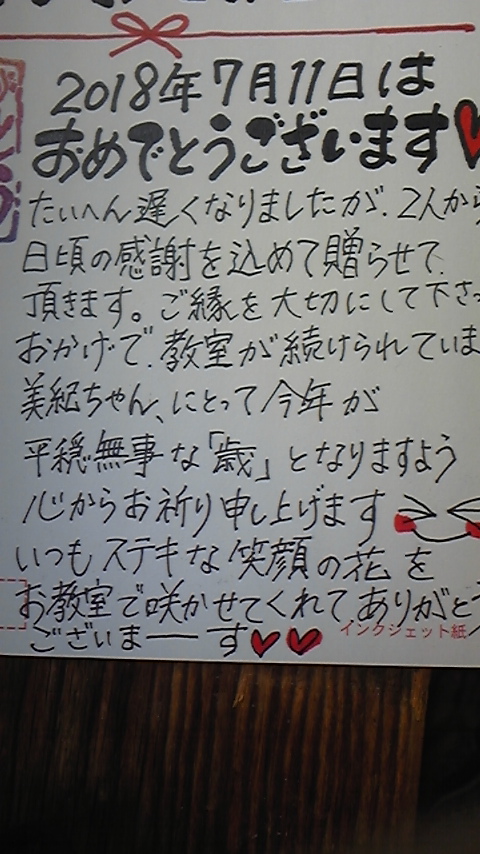 2018年7月11日は
おめでとうございます
たいへん遅くなりましたが、2人から
日頃の感謝を込めて贈らせて
頂きます。ご縁を大切にして下さっ
おかげで、教室が続けられていま
美紀ちゃん、にとって今年が
平穏無事な「歳」となりますよう
心からお祈り申し上げます
いつもステキな笑顔の花を
お教室で咲かせてくれてありがとう
ございまーす
インクジェット紙